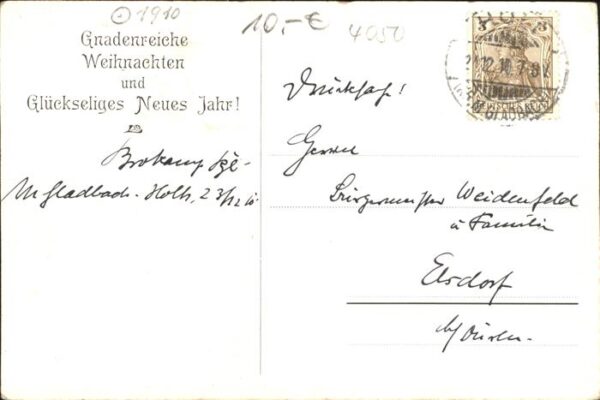 1910
10,-€
4050
Gnadenreiche
Weihnachten
und
Glückseliges Neues Jahr!
M Gladbach-Holt, 23/12 10.
3
3
12.10.7-8V
DEUTSCHES REICH
Drucksache!
Herrn
Bürgermeister Weidenfeld
u Familie
Elsdorf
b/ Düren